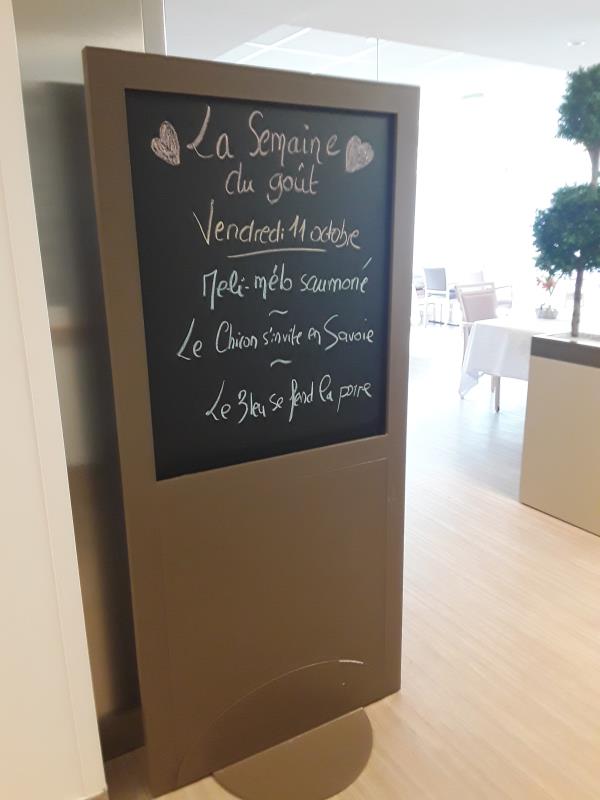 La Semaine
du goût
Vendredi 11 octobre
Meli-mélo saumoné
~
Le Chiron s'invite en Savoie
~
Le Bleu se fend la poire